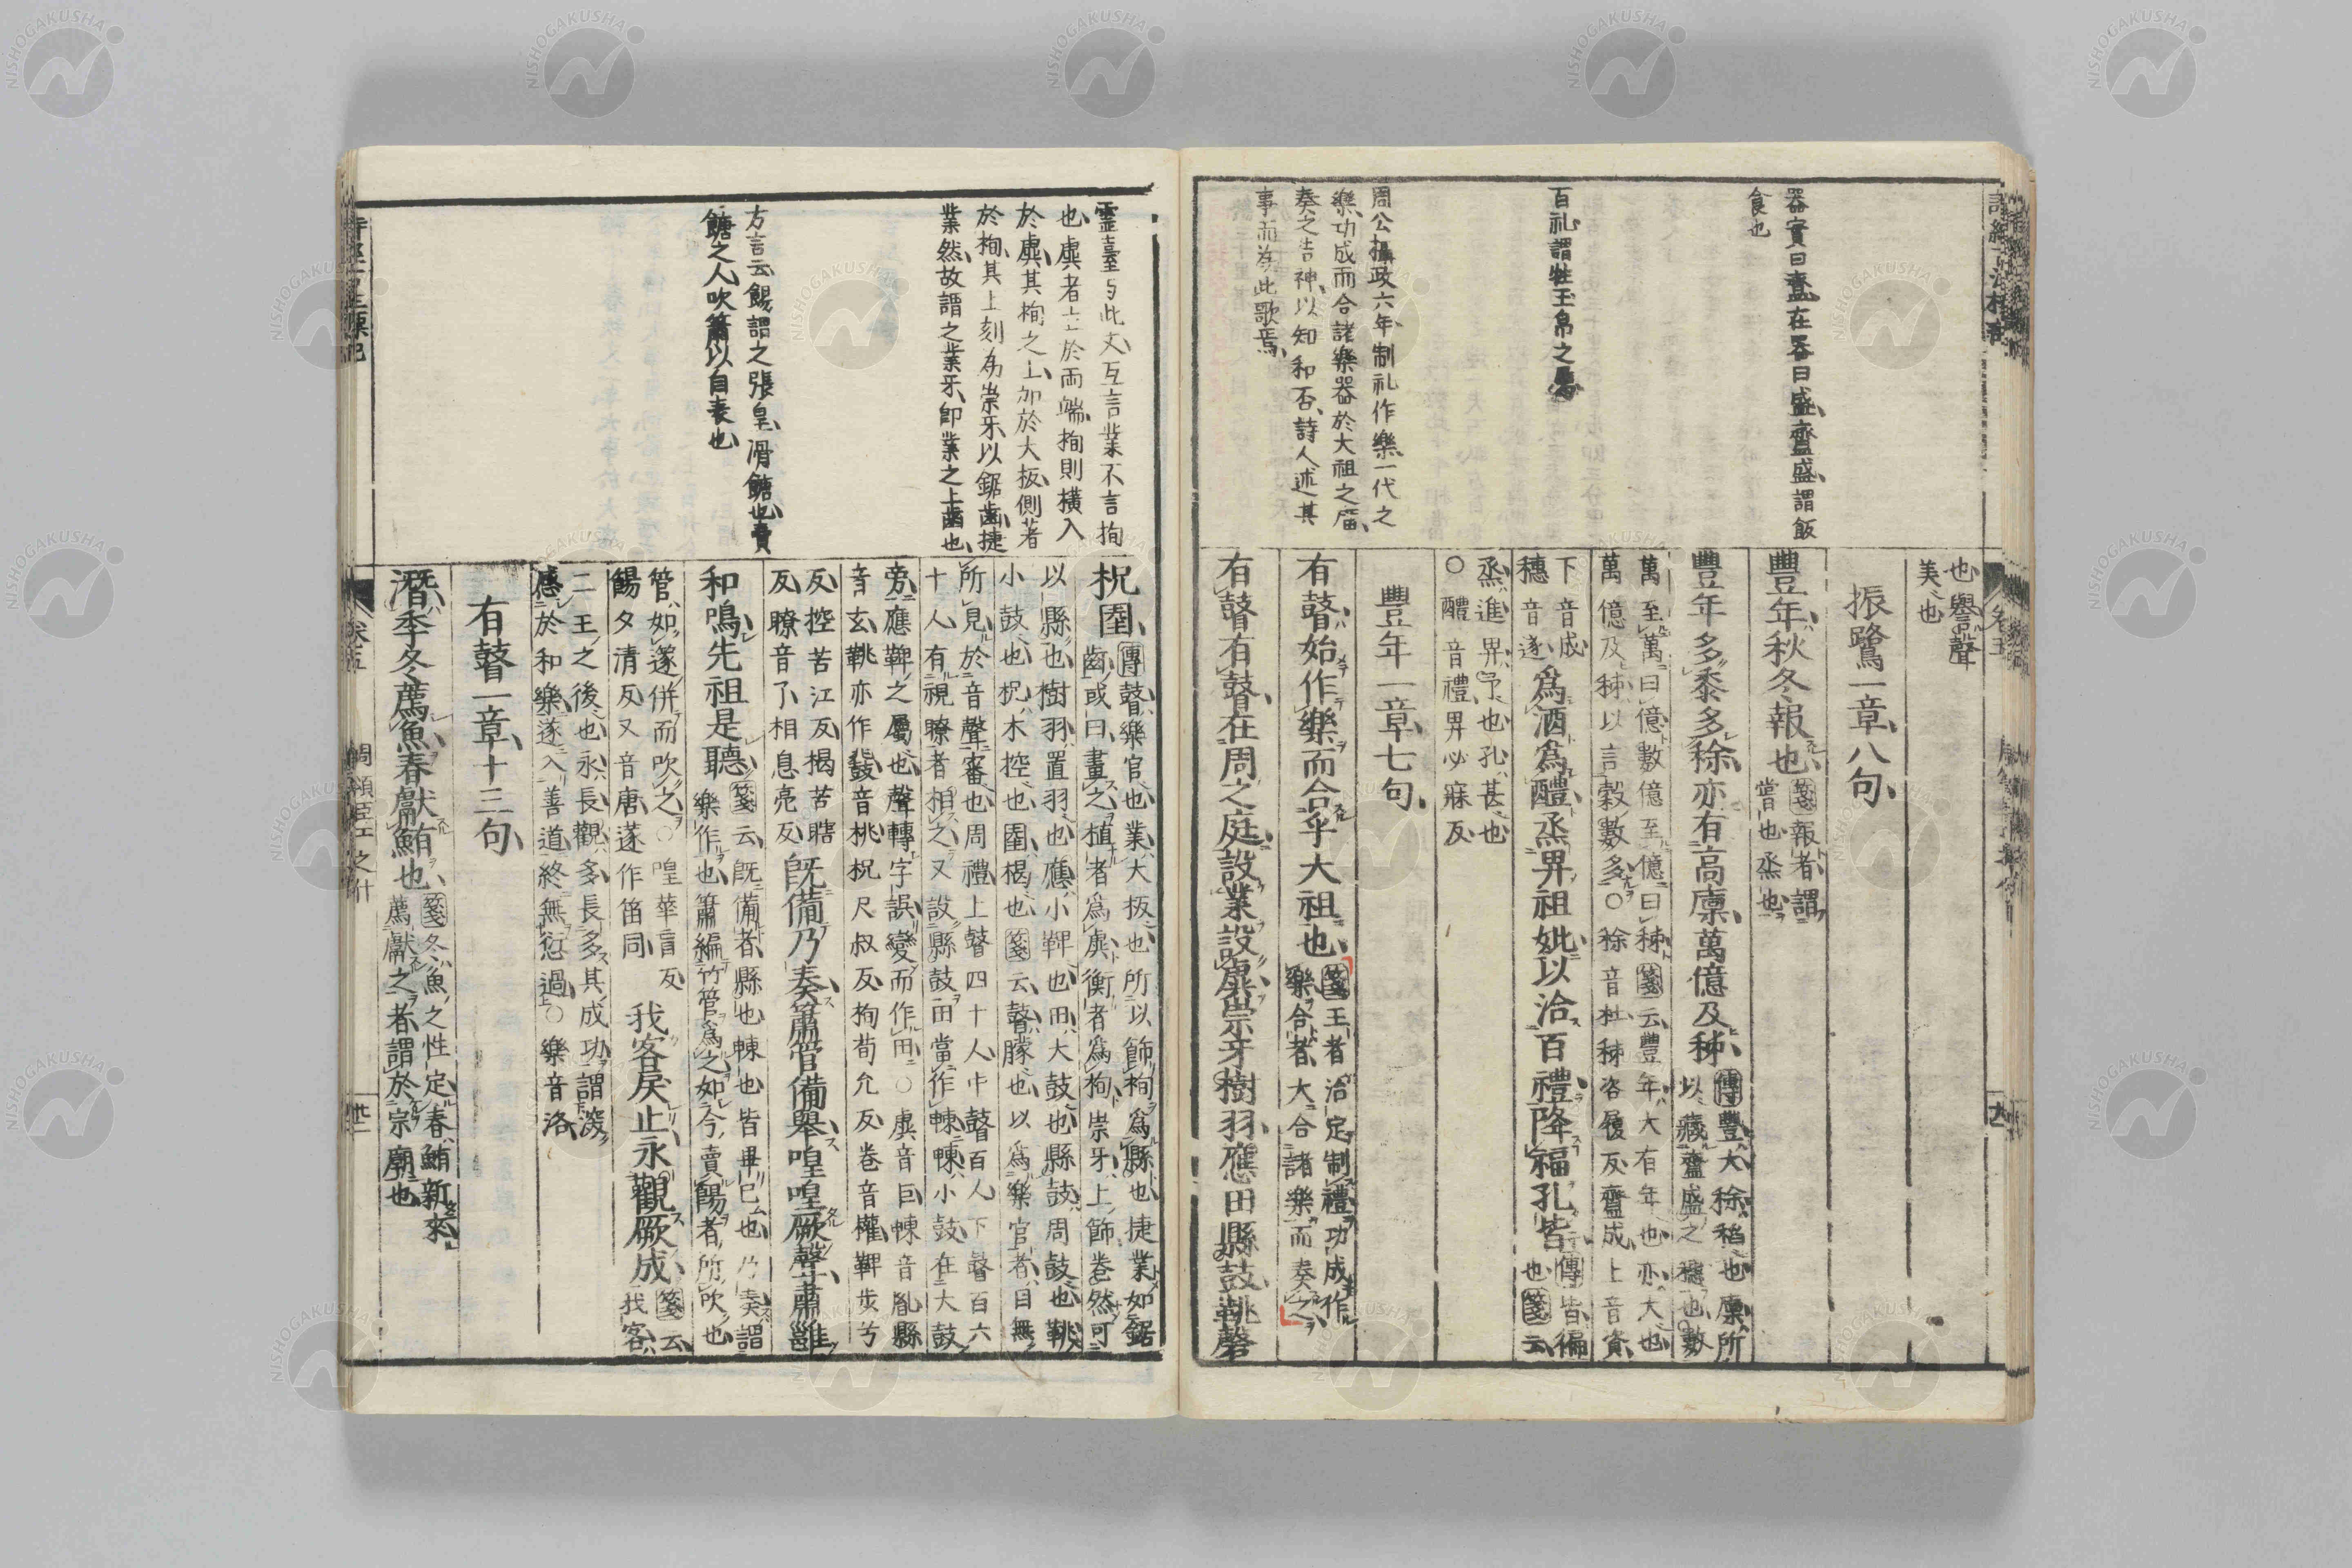 器實曰齍在器曰盛齍盛謂飯
食也
百礼謂牲玉帛之屬
周公攝政六年制礼作樂一代之
樂功成而合諸樂器於大祖之庿
奏之告神以知和否詩人述其
事而為此歌焉
也譽聲
美也
振鷺一章八句
豐年秋冬報也箋報者謂
嘗也烝也
豐年多黍多稌亦有高廩萬億及秭傳豐大稌稻也廩所
以藏齍盛之穗也數
萬至萬曰億數億至億曰秭箋云豐年大有年也亦大也
萬億及秭以言穀數多○稌音杜秭咨履反齍成上音資
下音成
穗音遂
為酒為醴烝畀祖妣以洽百禮降福孔皆傳皆徧
也箋云
烝進畀予也孔甚也
○醴音禮畀必寐反
豐年一章七句
有瞽始作樂而合乎大祖也箋王者治定制禮功成作
樂合者大合諸樂而奏之
有瞽有瞽在周之庭設業設虡崇牙樹羽應田縣鼓鞉磬
靈臺与此文互言業不言栒
也虡者立於兩端栒則橫入
於虡其栒之上加於大板側著
於栒其上刻為崇牙以鋸齒捷
業然故謂之業牙即業之上齒也
方言云餳謂之張皇滑餹也賣
餹之人吹簫以自表也
柷圉傳瞽樂官也業大板也所以飾栒為縣也捷業如鋸
齒或曰畫之植者為虡衡者為栒崇牙上飾卷然可
以縣也樹羽置羽也應小鞞也田大鼓也縣鼓周鼓也鞉
小鼓也柷木椌也圉楬也箋云瞽矇也以為樂官者目無
所見於音聲審也周禮上瞽四十人中瞽百人下瞽百六
十人有視瞭者相之又設縣鼓田當作朄朄小鼓在大鼓
旁應鞞之屬也聲轉字誤變而作田○虡音巨朄音胤縣
音玄鞉亦作鼗音桃柷尺叔反栒荀允反卷音權鞞步兮
反椌苦江反楬苦瞎
反瞭音了相息亮反
既備乃奏簫管備舉喤喤厥聲肅雝
和鳴先祖是聽箋云既備者縣也朄也皆畢已也乃奏謂
樂作也簫編竹管為之如今賣餳者所吹也
管如篴併而吹之○喤華盲反
餳夕清反又音唐篴作笛同
我客戾止永觀厥成箋云
我客
二王之後也永長觀多長多其成功謂深
感於和樂遂入善道終無愆過○樂音洛
有瞽一章十三句
潛季冬薦魚春獻鮪也箋冬魚之性定春鮪新來
薦獻之者謂於宗廟也